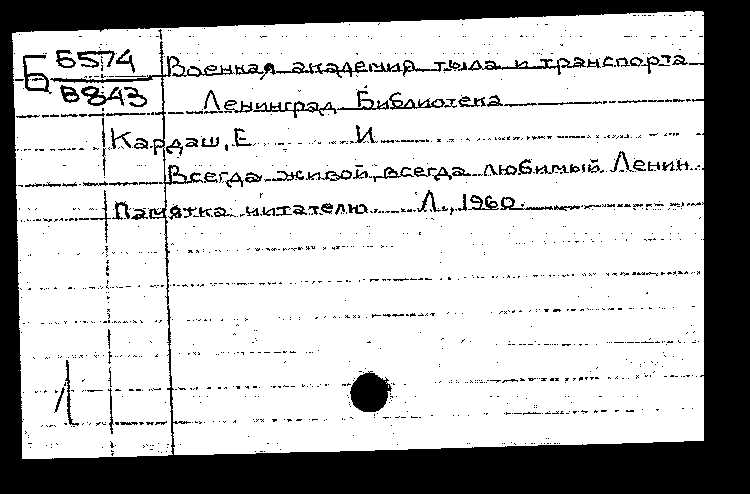 Б Б574
В843
Военная академия тыла и транспорта
Ленинград Библиотека
Кардаш, Е И
Всегда живой, всегда любимый Ленин.
Памятка читателю. Л., 1960.
1